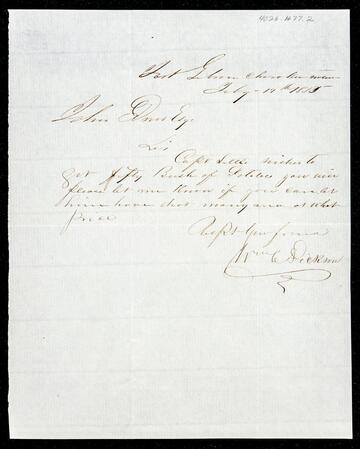 4026.1677.2
Fort Gibson Cherokee Nation
July 19th 1845
John Drew Esq.
Sir
Capt wishes to
get fifty Bush of Potatoes you will
please let me know if you can let
him have that many and at what
price
Respt Your friend
Wm C Dickson